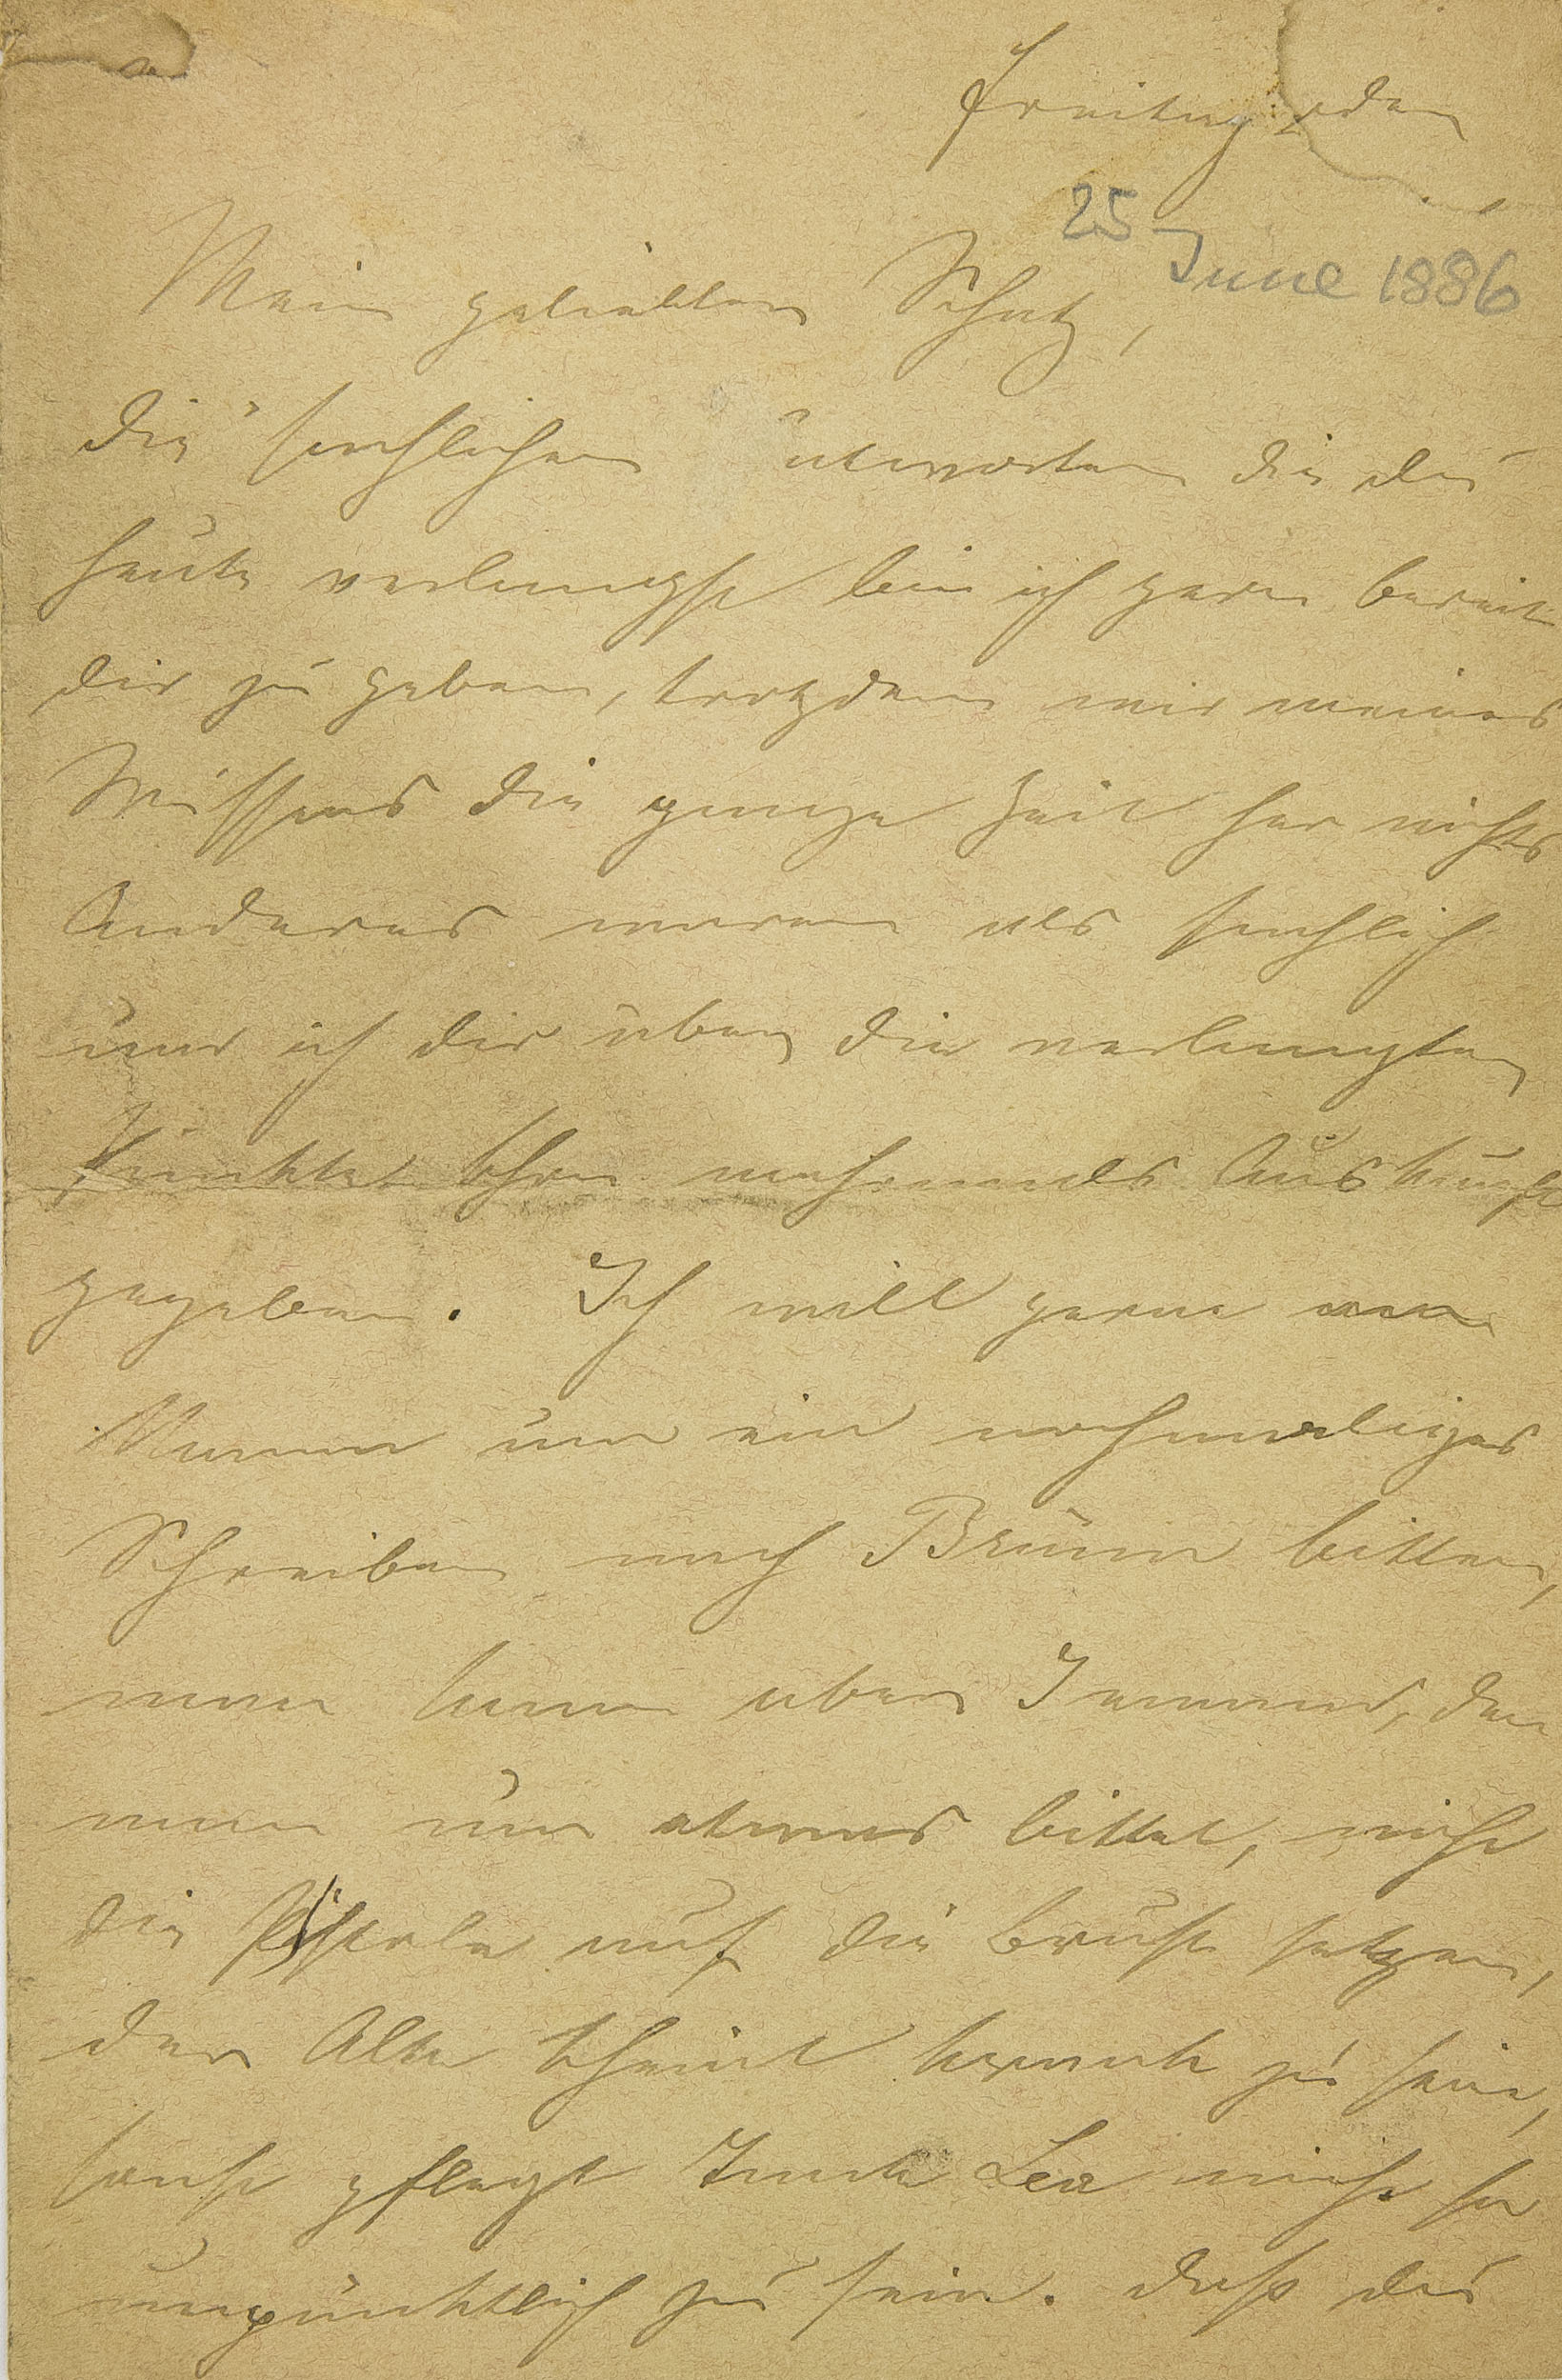 Freitag den
25 June 1886
Mein geliebter Schatz,
die sachlichen Antworten die du
heute verlangst bin ich gern bereit
dir zu geben, trotzdem wir meines
Wissens die ganze Zeit her nichts
Anderes waren als sachlich
und ich dir über die verlangten
Punkte schon mehrmals Auskunft
gegeben. Ich will gerne
Mama um ein nochmaliges
Schreiben nach Brünn bitten,
man kann aber Jemand, den
man um etwas bittet, nicht
die Pistole auf die Brust setzen,
der Alte scheint krank zu sein,
sonst pflegt Tante Lea nicht so
unpünktlich zu sein. Daß du